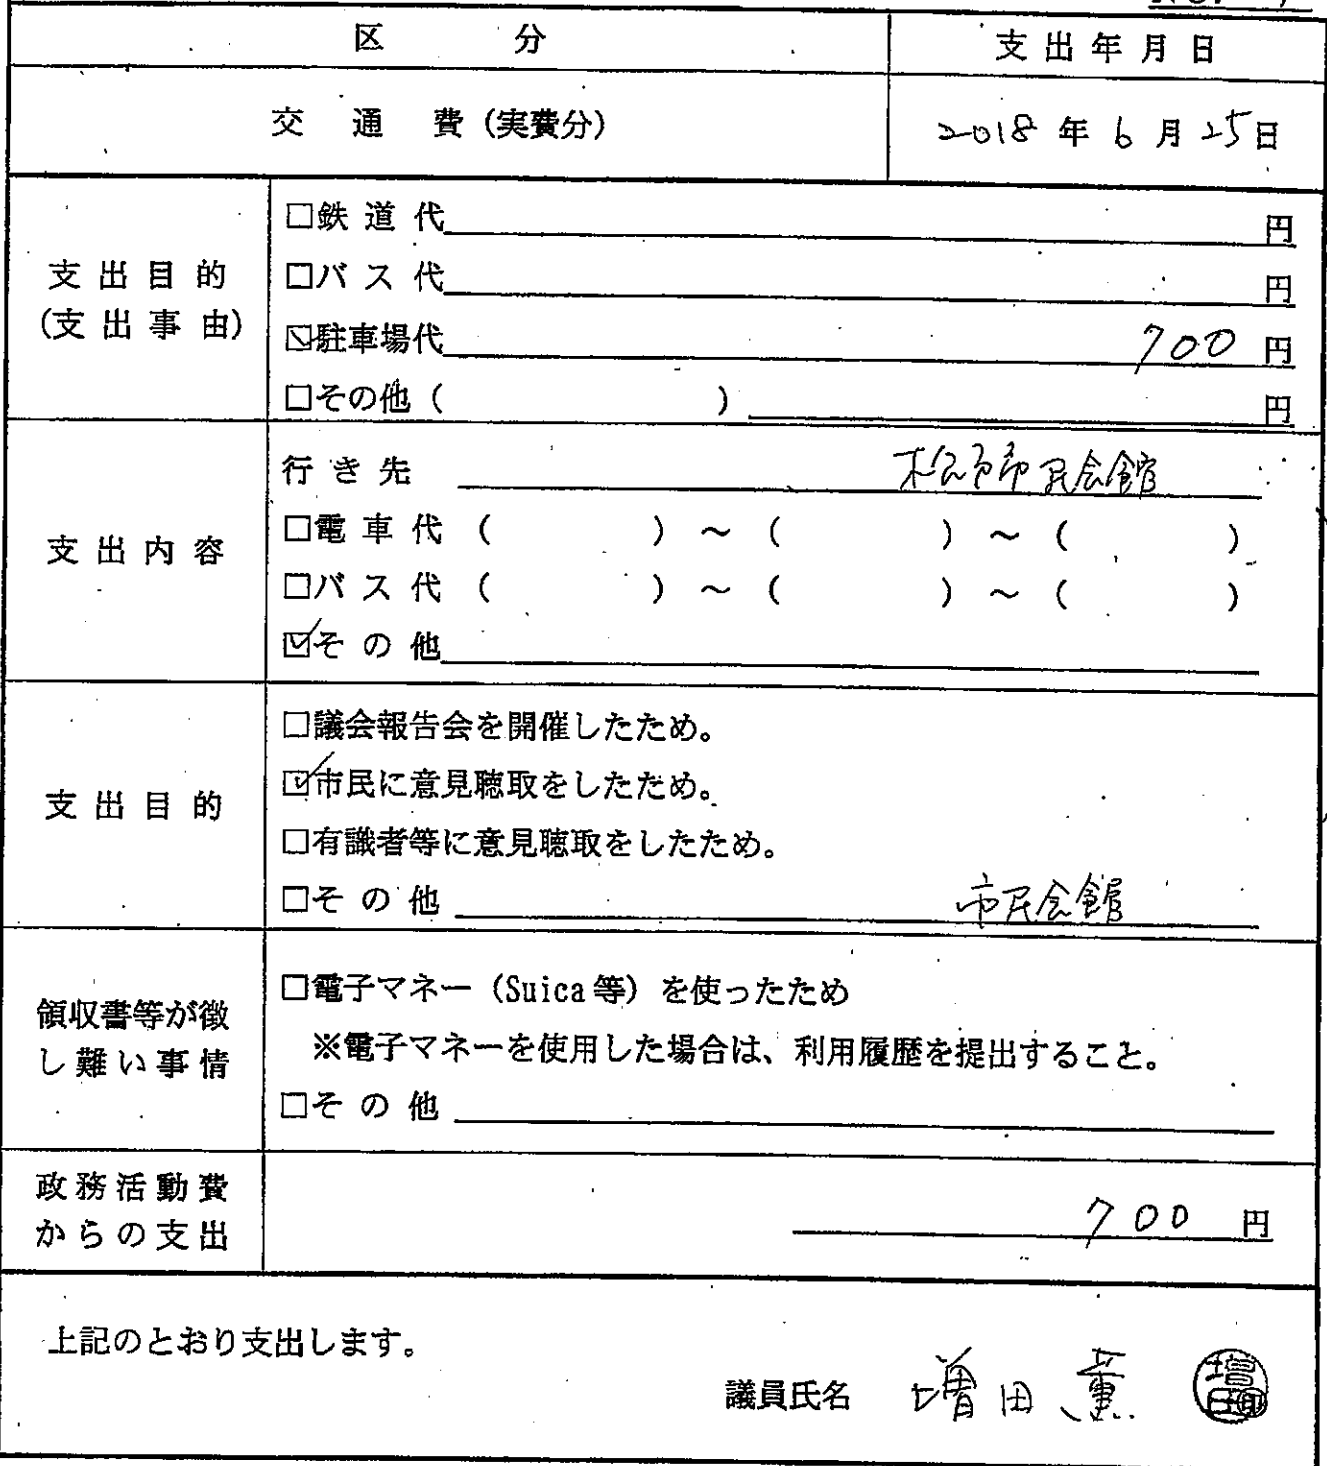 区 分 支出年月日
交通費(実費分) 2018年6月25日
支出目的
(支出事由)
□鉄道代 円
□バス代 円
☑駐車場代 700円
□その他( ) 円
支出内容
行き先 松戸市市民会館
□電車代( )~( )~( )
□バス代( )~( )~( )
☑その他
支出目的
□議会報告会を開催したため。
☑市民に意見聴取をしたため。
□有識者等に意見聴取をしたため。
□その他 市民会館
領収書等が徴
し難い事情
□電子マネー(Suica等)を使ったため
※電子マネーを使用した場合は、利用履歴を提出すること。
□その他
政務活動費
からの支出
700円
上記のとおり支出します。
議員氏名 増田薫